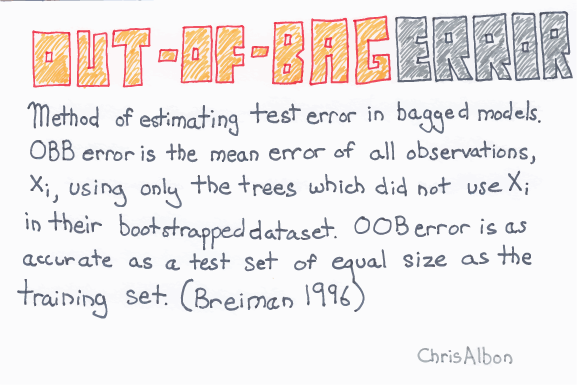 OUT-OF-BAG ERROR
Method of estimating test error in bagged models.
OBB error is the mean error of all observations,
Xi, using only the trees which did not use Xi
in their bootstrapped dataset. OOB error is as
accurate as a test set of equal size as the
training set. (Breiman 1996)
ChrisAlbon